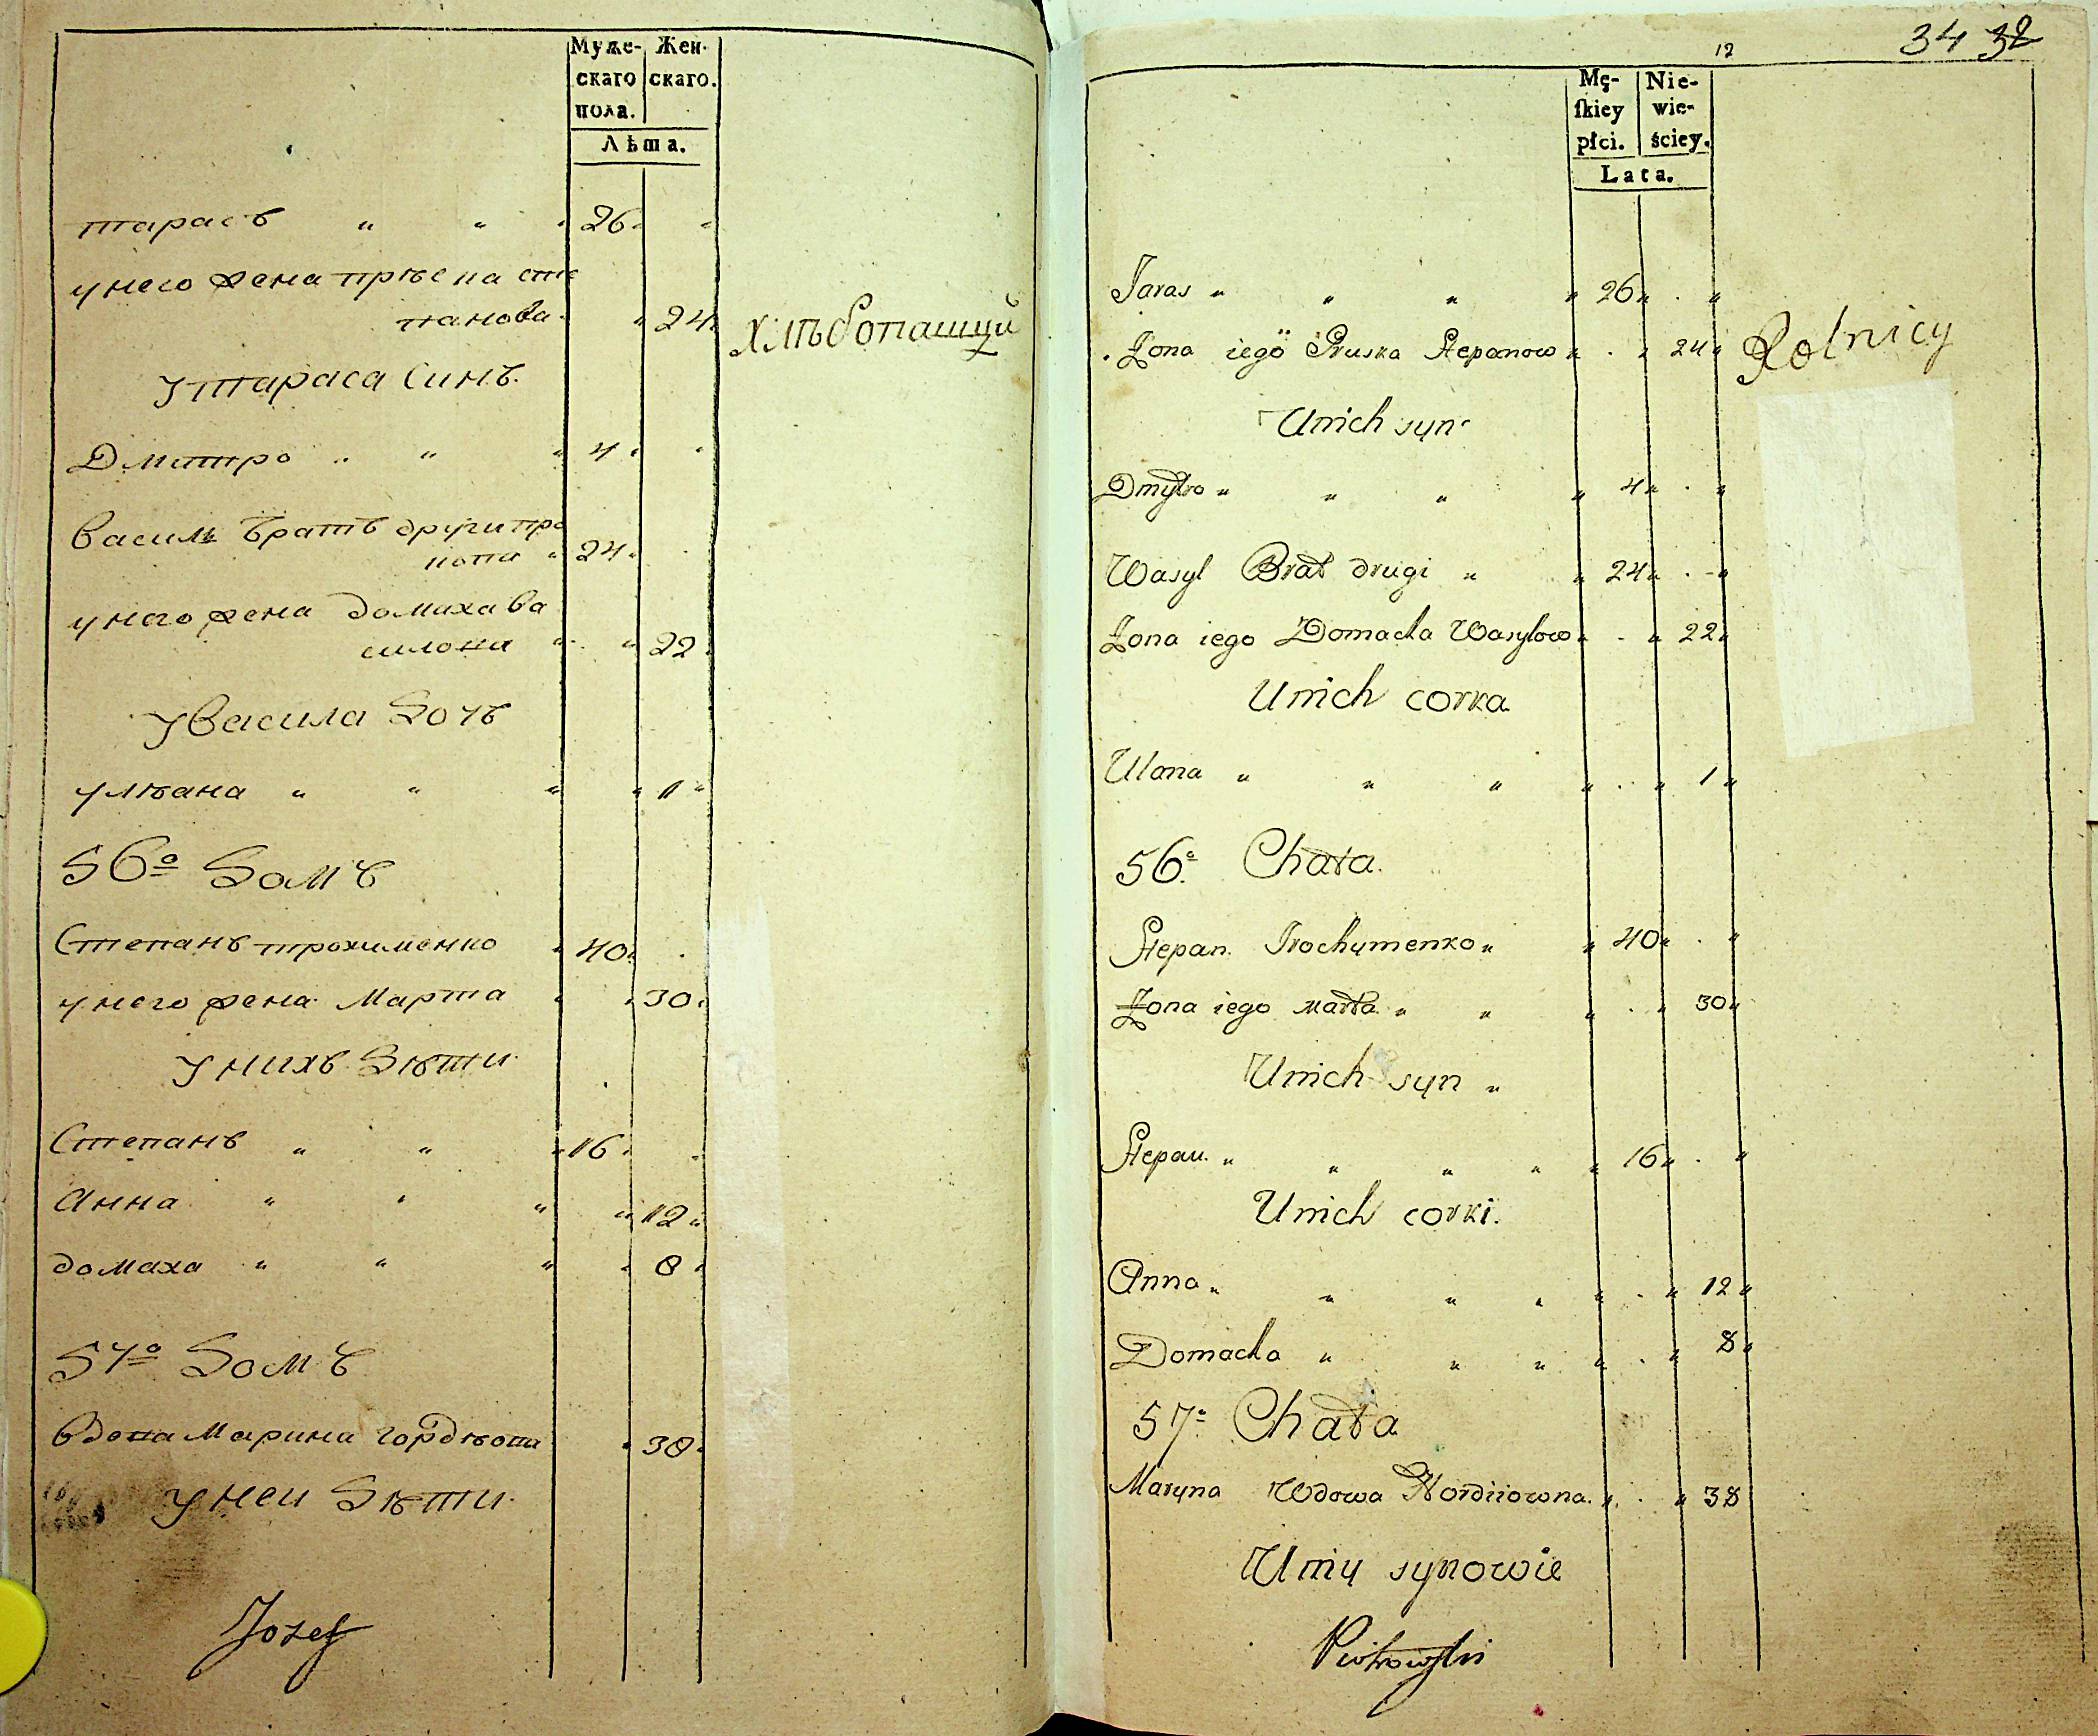 Муже- Жен-
скаго скаго.
пола.
Лѣта.
тарасъ " " " 26 "
унего жена прѣсна сте
панова " " 24
Хлѣбопашцй
Утараса Синъ
Дмитро " " " 4 "
василь братъ други про
копи " 24 "
унего жена домаха ва
силова " " 22
Увасила Дочь
улѣана " " " " 1 "
56º Домъ
Степанъ трохименко " 40 "
унего жена Марта " " 30 "
Унихъ Дѣти
Степанъ " " " 16 "
Анна " " " " 12 "
домаха " " " " 8 "
57º Домъ
вдова Марина гордѣова " 38 "
Унеи Дѣти
Jozef
12
34 32
Mę- Nie-
ſkiey wie-
płci. ściey.
Lata.
Taras " " " " 26 " . "
Żona iego Pruska Stepanow " . " 24 "
Rolnicy
Unich syn
Dmytro " " " " 4 " . "
Wasyl Brat drugi " " 24 " . "
Żona iego Domacha Wasylow " . " 22 "
Unich corka
Ulana " " " " . " 1 "
56º Chata.
Stepan Trochymenko " " 40 " . "
Żona iego marta " " " . " 30 "
Unich syn "
Stepan " " " " " 16 " . "
Unich corki.
Anna " " " " " . " 12 "
Domacha " " " " . " 8 "
57º Chata
Maryna Wdowa Hordiiowna " . " 38
Uniy synowie
Piotrowski